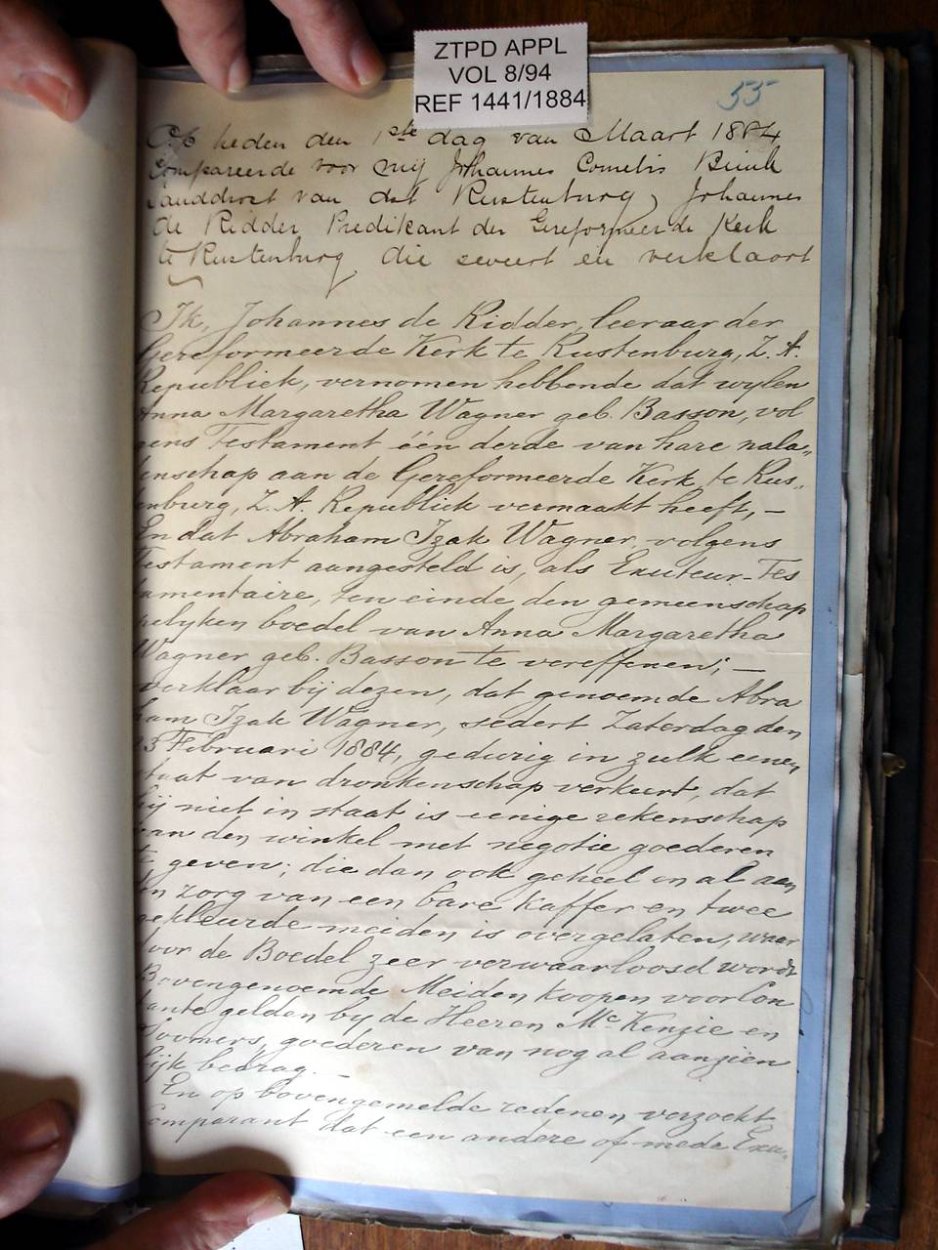 ZTPD APPL
VOL 8/94
REF 1441/1884
55
Op heden den 1ste dag van Maart 1884
Compareerde voor mij Johannes Cornelis
Landdrost van dist Rustenburg, Johannes
de Ridder Predikant der Gereformeerde Kerk
te Rustenburg die sweert en verklaart
Ik, Johannes de Ridder, leeraar der
Gereformeerde Kerk te Rustenburg, Z. A.
Republiek, vernomen hebbende dat wylen
Anna Margaretha Wagner geb. Basson, vol
gens Testament één derde van hare nala„
enschap aan de Gereformeerde Kerk te Rus„
enburg, Z. A. Republiek vermaakt heeft, —
En dat Abraham Izak Wagner, volgens
Testament aangesteld is, als Exuteur-Tes
tamentaire, ten einde den gemeenschap
pelyken boedel van Anna Margaretha
Wagner geb. Basson te vereffenen; —
verklaar bij dezen, dat genoemde Abra
ham Izak Wagner, sedert Zaterdag den
23 Februari 1884, gedurig in zulk eenen
staat van dronkenschap verkeert, dat
hij niet in staat is eenige rekenschap
van den winkel met negotie goederen
te geven; die dan ook geheel en al aan
en zorg van een bare Kaffer en twee
gekleurde meiden is overgelaten, waar
door de Boedel zeer verwaarloosd wordt
Bovengenoemde Meiden koopen voor Con
tante gelden by de Heeren Mc Kenzie en
goederen van nog al aanzien
lijk bedrag. —
En op bovengemelde redenen verzoekt
Comparant dat een andere of mede Exu„